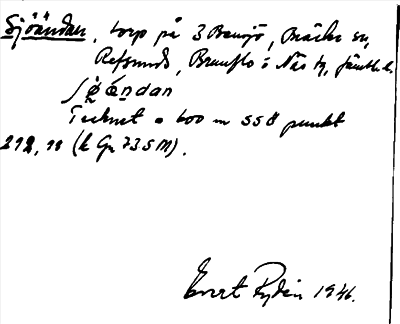 Sjöändan, torp på 3 Bensjö, Bräcke sn,
Refsunds, Brunflo o Näs tg, Jämtl. l.
ʃø̀ǽndan
Tecknet c 600 m SSÖ punkt
292, (k Gr 735M).
Evert Rydin 1946.